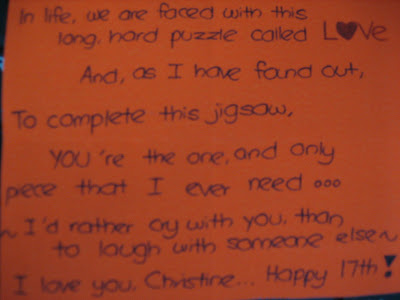 In life, we are faced with this
long, hard puzzle called L♥Ve
And, as I have found out,
To complete this jigsaw,
YOU're the one, and only
piece that I ever need ooo
~ I'd rather cry with you, than
to laugh with someone else ~
I love you, Christine... Happy 17th!